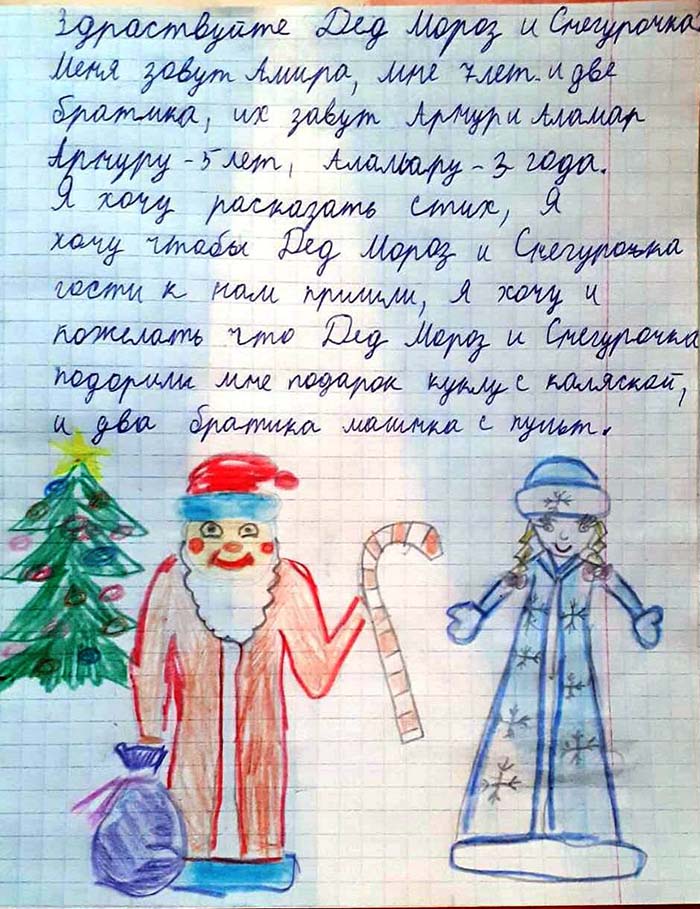 Здраствуйте Дед Мороз и Снегурочка.
Меня зовут Амира, мне 7 лет и две
братика, их зовут Артур и Аламар
Артуру - 5 лет, Аламару - 3 года.
Я хочу расказать стих, Я
хочу чтобы Дед Мороз и Снегурочка
гости к нам пришли, Я хочу и
пожелать что Дед Мороз и Снегурочка
подорили мне подарок куклу с каляской,
и два братика машинка с пульт.